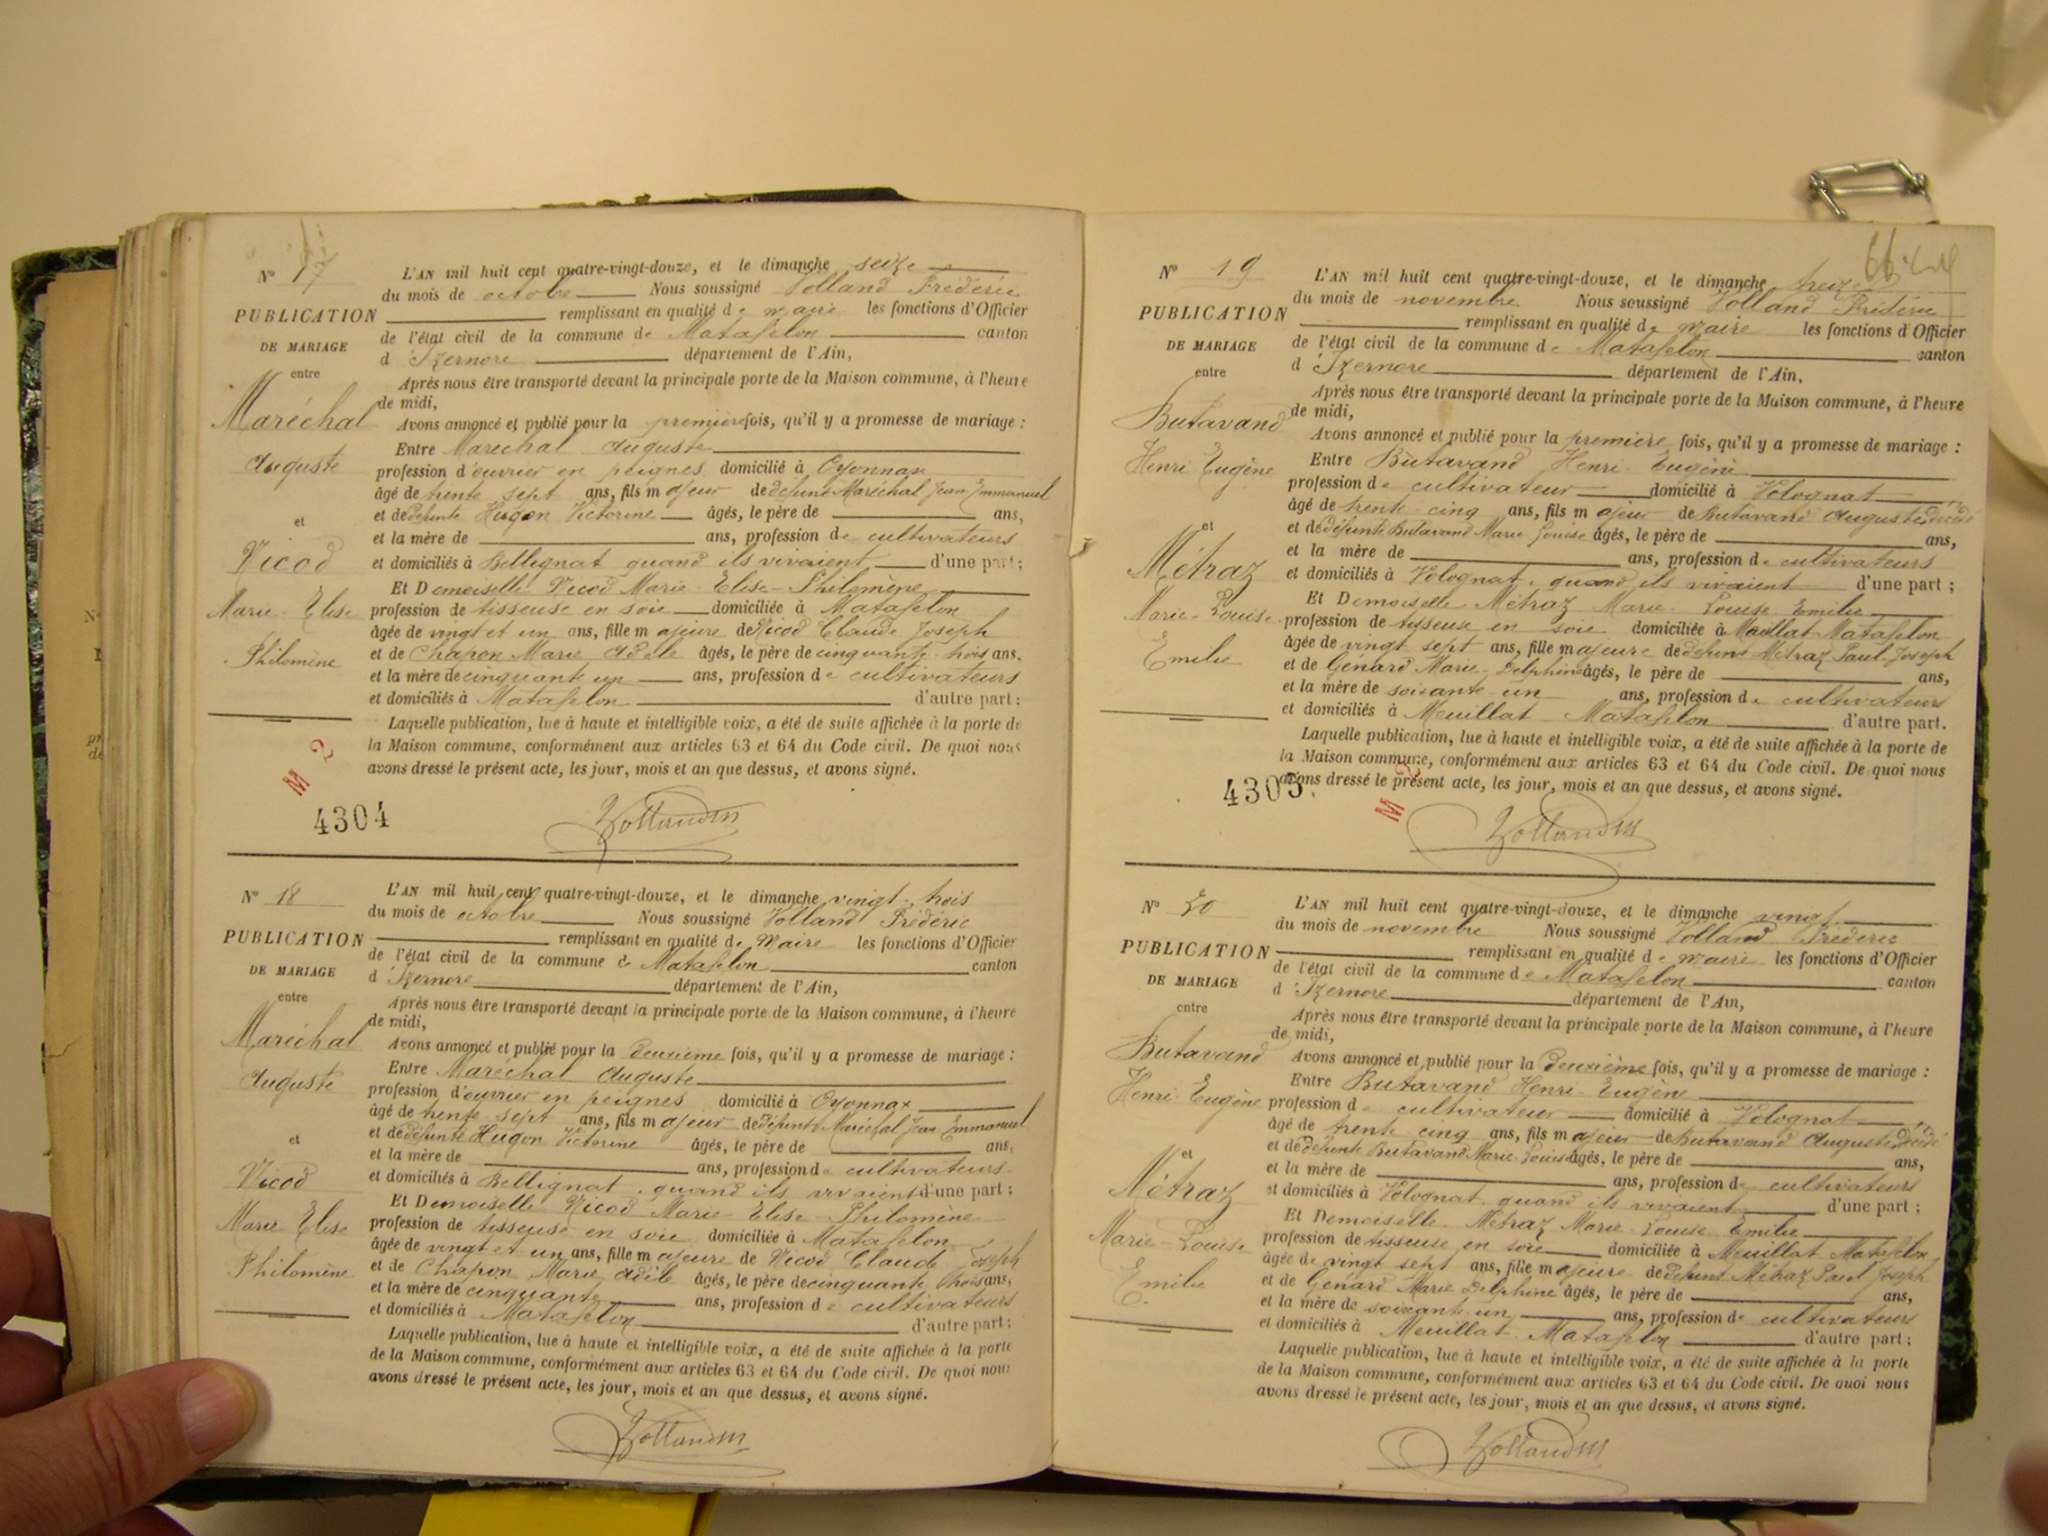 Nº 17
L'AN mil huit cent quatre-vingt-douze, et le dimanche seize
du mois de octobre Nous soussigné Volland Frédéric
PUBLICATION
remplissant en qualité de maire les fonctions d'Officier
DE MARIAGE
de l'état civil de la commune de Matafelon canton
d'Izernore département de l'Ain,
entre
Après nous être transporté devant la principale porte de la Maison commune, à l'heure
de midi,
Maréchal
Avons annoncé et publié pour la première fois, qu'il y a promesse de mariage :
Entre Maréchal Auguste
Auguste
profession d'ouvrier en peignes domicilié à Oyonnax
âgé de trente sept ans, fils majeur de défunt Maréchal Jean Emmanuel
et
et de défunte Hugon Victorine âgés, le père de ans,
et la mère de ans, profession de cultivateurs
Nicod
et domiciliés à Bellignat quand ils vivaient d'une part ;
Et Demoiselle Nicod Marie-Elise-Philomène
Marie-Elise
profession de tisseuse en soie domiciliée à Matafelon
âgée de vingt et un ans, fille majeure de Nicod Claude Joseph
Philomène
et de Chapon Marie Adèle âgés, le père de cinquante trois ans.
et la mère de cinquante un ans, profession de cultivateurs
et domiciliés à Matafelon d'autre part ;
Laquelle publication, lue à haute et intelligible voix, a été de suite affichée à la porte de
la Maison commune, conformément aux articles 63 et 64 du Code civil. De quoi nous
avons dressé le présent acte, les jour, mois et an que dessus, et avons signé.
M 2
4304
Nº 18
L'AN mil huit cent quatre-vingt-douze, et le dimanche vingt-trois
du mois de octobre Nous soussigné Volland Frédéric
PUBLICATION
remplissant en qualité de Maire les fonctions d'Officier
DE MARIAGE
de l'état civil de la commune de Matafelon canton
d'Izernore département de l'Ain,
entre
Après nous être transporté devant la principale porte de la Maison commune, à l'heure
de midi,
Maréchal
Avons annoncé et publié pour la deuxième fois, qu'il y a promesse de mariage :
Entre Maréchal Auguste
Auguste
profession d'ouvrier en peignes domicilié à Oyonnax
âgé de trente sept ans, fils majeur de défunt Maréchal Jean Emmanuel
et
et de défunte Hugon Victorine âgés, le père de ans,
et la mère de ans, profession de cultivateurs
Nicod
et domiciliés à Bellignat quand ils vivaient d'une part ;
Et Demoiselle Nicod Marie Elise Philomène
Marie Elise
profession de tisseuse en soie domiciliée à Matafelon
âgée de vingt et un ans, fille majeure de Nicod Claude Joseph
Philomène
et de Chapon Marie Adèle âgés, le père de cinquante trois ans,
et la mère de cinquante ans, profession de cultivateurs
et domiciliés à Matafelon d'autre part ;
Laquelle publication, lue à haute et intelligible voix, a été de suite affichée à la porte
de la Maison commune, conformément aux articles 63 et 64 du Code civil. De quoi nous
avons dressé le présent acte, les jour, mois et an que dessus, et avons signé.
Nº 19
L'AN mil huit cent quatre-vingt-douze, et le dimanche treize
du mois de novembre Nous soussigné Volland Frédéric
PUBLICATION
remplissant en qualité de maire les fonctions d'Officier
DE MARIAGE
de l'état civil de la commune de Matafelon canton
d'Izernore département de l'Ain,
entre
Après nous être transporté devant la principale porte de la Maison commune, à l'heure
de midi,
Butavand
Avons annoncé et publié pour la première fois, qu'il y a promesse de mariage :
Entre Butavand Henri-Eugène
Henri Eugène
profession de cultivateur domicilié à Volognat
âgé de trente-cinq ans, fils majeur de Butavand Auguste décédé
et
et de défunte Butavand Marie Louise âgés, le père de ans,
et la mère de ans, profession de cultivateurs
Métraz
et domiciliés à Volognat, quand ils vivaient d'une part ;
Et Demoiselle Métraz Marie-Louise Emilie
Marie-Louise
profession de tisseuse en soie domiciliée à Meuillat Matafelon
âgée de vingt sept ans, fille majeure de défunt Métraz Paul-Joseph
Emilie
et de Génard Marie-Delphine âgés, le père de ans,
et la mère de soixante-un ans, profession de cultivateurs
et domiciliés à Meuillat Matafelon d'autre part.
Laquelle publication, lue à haute et intelligible voix, a été de suite affichée à la porte de
la Maison commune, conformément aux articles 63 et 64 du Code civil. De quoi nous
avons dressé le présent acte, les jour, mois et an que dessus, et avons signé.
4305
M 2
Nº 20
L'AN mil huit cent quatre-vingt-douze, et le dimanche vingt
du mois de novembre Nous soussigné Volland Frédéric
PUBLICATION
remplissant en qualité de maire les fonctions d'Officier
DE MARIAGE
de l'état civil de la commune de Matafelon canton
d'Izernore département de l'Ain,
entre
Après nous être transporté devant la principale porte de la Maison commune, à l'heure
de midi,
Butavand
Avons annoncé et publié pour la deuxième fois, qu'il y a promesse de mariage :
Entre Butavand Henri-Eugène
Henri Eugène
profession de cultivateur domicilié à Volognat
âgé de trente cinq ans, fils majeur de Butavand Auguste décédé
et
et de défunte Butavand Marie-Louise âgés, le père de ans,
et la mère de ans, profession de cultivateurs
Métraz
et domiciliés à Volognat quand ils vivaient d'une part ;
Et Demoiselle Métraz Marie-Louise Emilie
Marie-Louise
profession de tisseuse en soie domiciliée à Meuillat Matafelon
âgée de vingt sept ans, fille majeure de défunt Métraz Paul Joseph
Emilie
et de Génard Marie Delphine âgés, le père de ans,
et la mère de soixante-un ans, profession de cultivateurs
et domiciliés à Meuillat Matafelon d'autre part ;
Laquelle publication, lue à haute et intelligible voix, a été de suite affichée à la porte
de la Maison commune, conformément aux articles 63 et 64 du Code civil. De quoi nous
avons dressé le présent acte, les jour, mois et an que dessus, et avons signé.